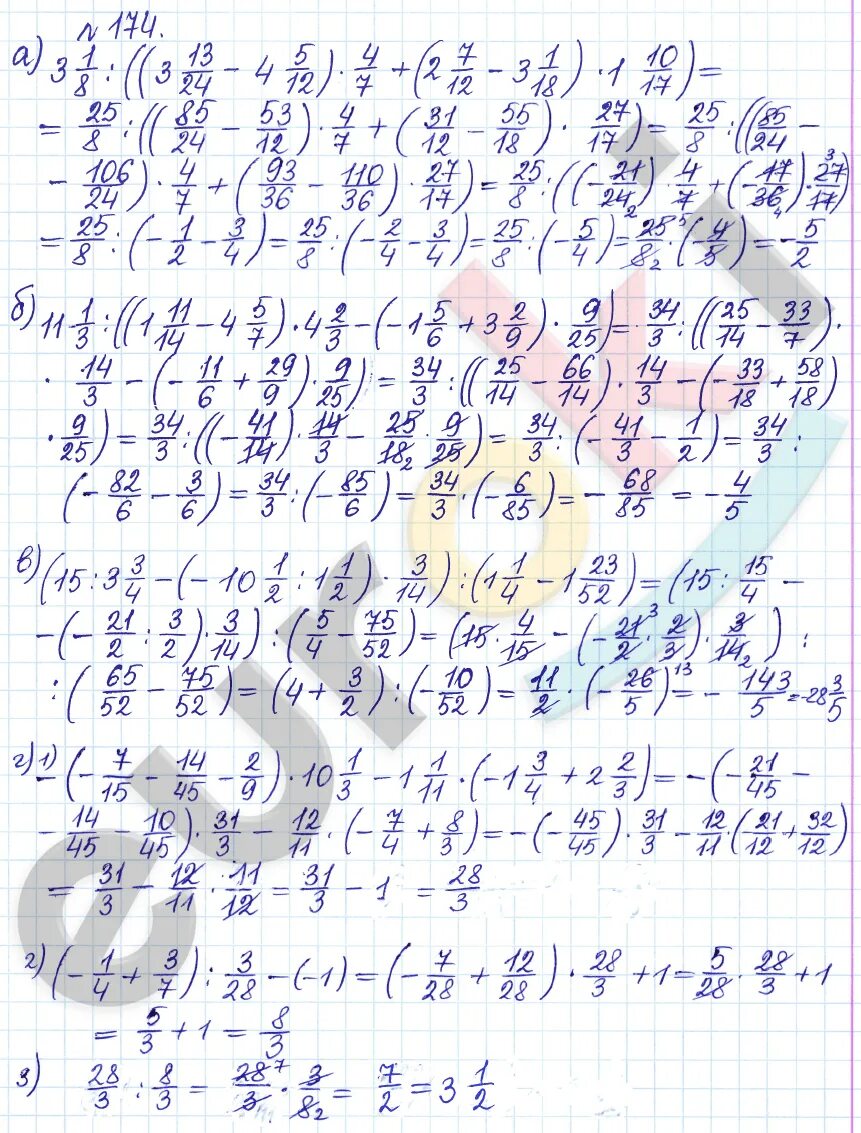 № 174.
а) 3 1/8 : ((3 13/24 − 4 5/12) · 4/7 + (2 7/12 − 3 1/18) · 1 10/17) =
= 25/8 : ((85/24 − 53/12) · 4/7 + (31/12 − 55/18) · 27/17) = 25/8 : ((85/24 −
− 106/24) · 4/7 + (93/36 − 110/36) · 27/17) = 25/8 : ((− 21/24) · 4/7 + (− 17/36) · 27/17)
= 25/8 : (− 1/2 − 3/4) = 25/8 : (− 2/4 − 3/4) = 25/8 : (− 5/4) = 25/8 · (− 4/5) = − 5/2
б) 11 1/3 : ((1 11/14 − 4 5/7) · 4 2/3 − (−1 5/6 + 3 2/9) · 9/25) = 34/3 : ((25/14 − 33/7) ·
· 14/3 − (− 11/6 + 29/9) · 9/25) = 34/3 : ((25/14 − 66/14) · 14/3 − (− 33/18 + 58/18)
· 9/25) = 34/3 : ((− 41/14) · 14/3 − 25/18 · 9/25) = 34/3 : (− 41/3 − 1/2) = 34/3 :
(− 82/6 − 3/6) = 34/3 : (− 85/6) = 34/3 · (− 6/85) = − 68/85 = − 4/5
в) (15 : 3 3/4 − (− 10 1/2 : 1 1/2) · 3/14) : (1 1/4 − 1 23/52) = (15 : 15/4 −
− (− 21/2 : 3/2) · 3/14) : (5/4 − 75/52) = (15 · 4/15 − (− 21/2 · 2/3) · 3/14) :
: (65/52 − 75/52) = (4 + 3/2) : (− 10/52) = 11/2 · (− 26/5) = − 143/5 = −28 3/5
г) 1) − (− 7/15 − 14/45 − 2/9) · 10 1/3 − 1 1/11 · (−1 3/4 + 2 2/3) = − (− 21/45 −
− 14/45 − 10/45) · 31/3 − 12/11 · (− 7/4 + 8/3) = − (− 45/45) · 31/3 − 12/11 (21/12 + 32/12)
= 31/3 − 12/11 · 11/12 = 31/3 − 1 = 28/3
2) (− 1/4 + 3/7) : 3/28 − (−1) = (− 7/28 + 12/28) · 28/3 + 1 = 5/28 · 28/3 + 1
= 5/3 + 1 = 8/3
3) 28/3 : 8/3 = 28/3 · 3/8 = 7/2 = 3 1/2
euroki